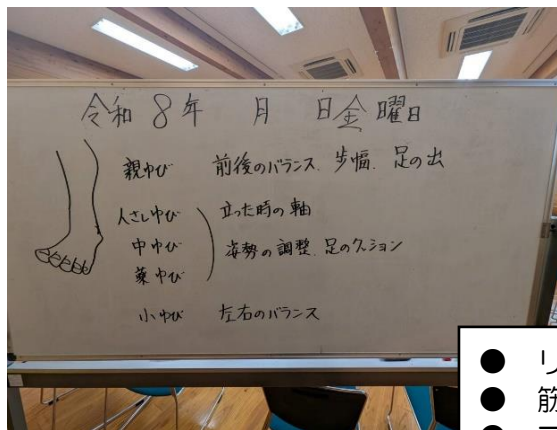 令和 8年 月 日金曜日
親ゆび 前後のバランス、歩幅、足の出
人さしゆび 立った時の軸
中ゆび 姿勢の調整、足のクッション
薬ゆび
小ゆび 左右のバランス
● リ
● 筋
●